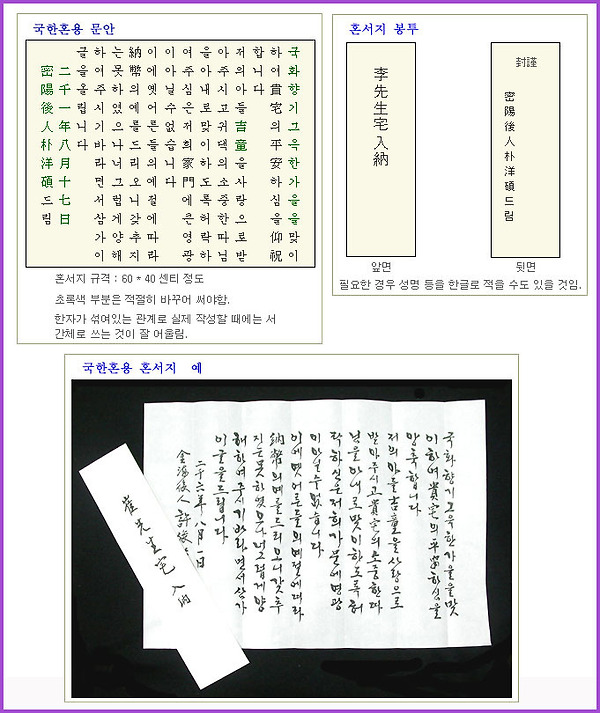 국한혼용 문안
국화향기그윽한가을을맞이
하여貴宅의平安하심을仰祝
합니다
저의아들吉童을사랑으로받
아주시고귀댁의소중한따님
을아내로맞이하도록허락하
여주심은저희家門에큰영광
이아닐수없습니다
이에옛어른들의예절에따라
納幣의예를드리오니갖추지
는못하였으나너그럽게양해
하여주시기바라면서삼가이
글을올립니다
二千一年八月十七日
密陽後人朴洋碩드림
혼서지 규격 : 60 * 40 센티 정도
초록색 부분은 적절히 바꾸어 써야함.
한자가 섞여있는 관계로 실제 작성할 때에는 서
간체로 쓰는 것이 잘 어울림.
혼서지 봉투
李先生宅入納
앞면
封謹
密陽後人朴洋碩드림
뒷면
필요한 경우 성명 등을 한글로 적을 수도 있을 것임.
국한혼용 혼서지 예
국화향기그윽한가을을맞
이하여貴宅의平安하심을
앙축합니다
저의아들吉童을사랑으로
받아주시고貴宅의소중한따
님을아내로맞이하도록허
락하심은저희가문에영광
이아닐수없습니다
이에옛어른들의예절에따라
納幣의예를드리오니갖추
지는못하였으나너그럽게양
해하여주시기바라면서삼가
이글을드립니다
二千六年八月一日
金海後人許俊
崔先生宅入納